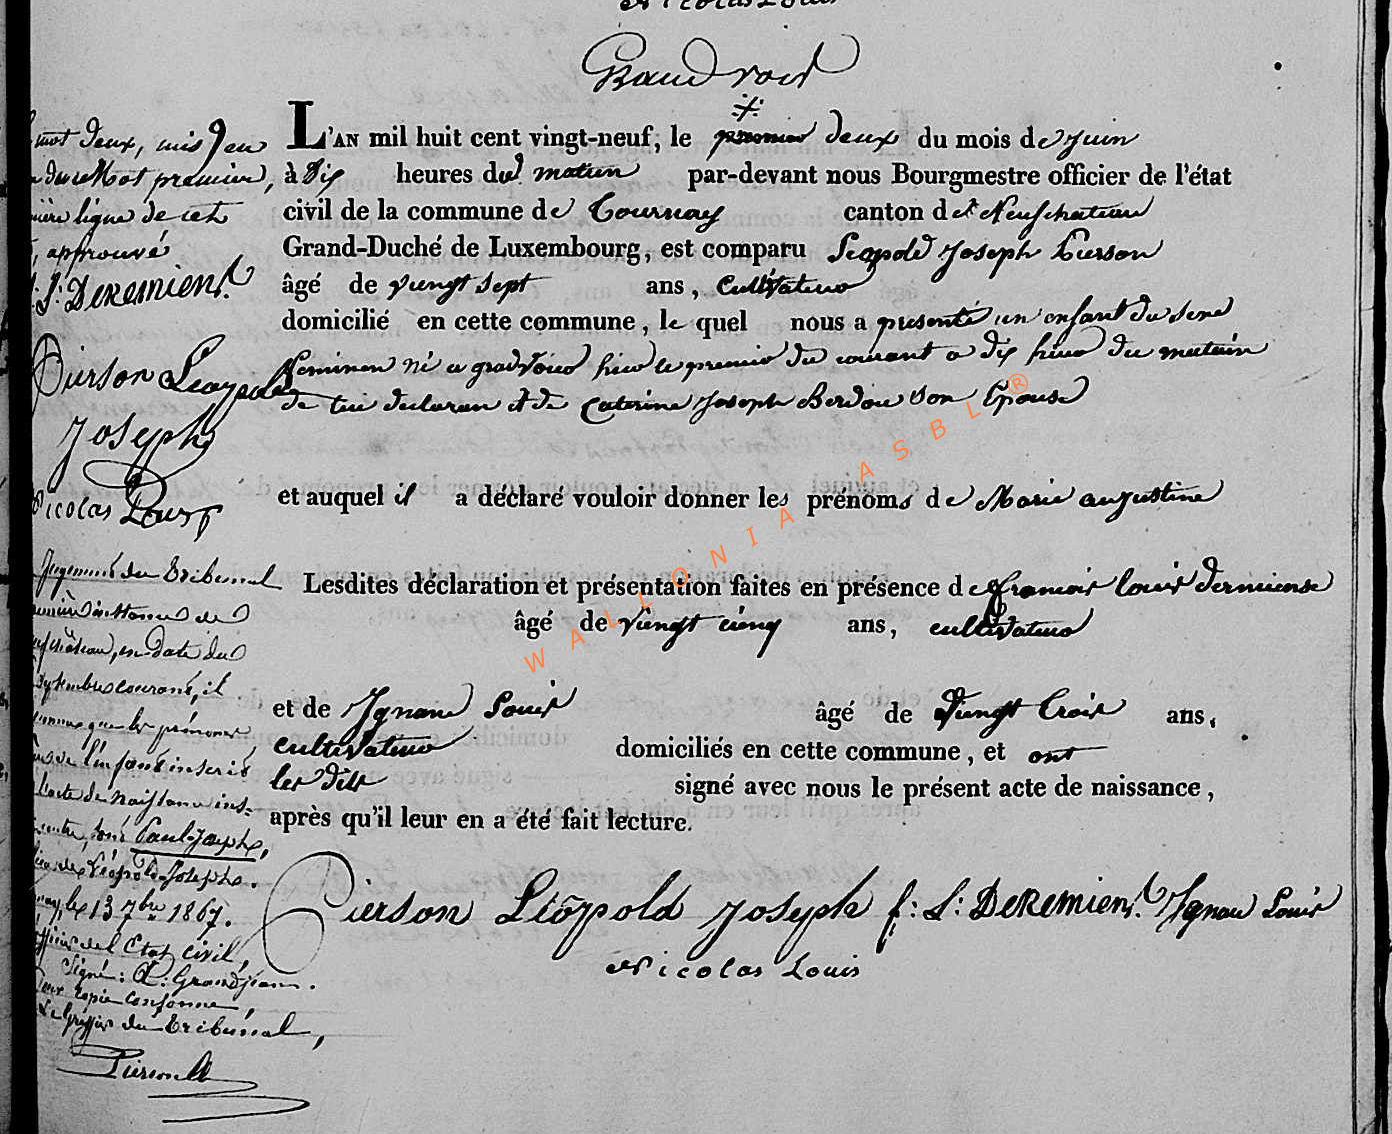 Nicolas Louis
Grandvoir
L'AN mil huit cent vingt-neuf, le premier deux du mois de Juin
à Dix heures du matin par-devant nous Bourgmestre officier de l'état
civil de la commune de Tournay canton de Neufchateau
Grand-Duché de Luxembourg, est comparu Leopold Joseph Pierson
âgé de viengt sept ans, Cultivateur
domicilié en cette commune, le quel nous a presenté un enfant du sexe
feminen né a grandvoir hier le premier du courant a dix heure du matin
de lui declaran et de Caterine Joseph Berdou son Epouse
et auquel il a déclaré vouloir donner les prénoms de Marie augustine
Lesdites déclaration et présentation faites en présence de francoir louis Deremiense
âgé de viengt cienq ans, cultivateur
et de Ignace Louis âgé de viengt trois ans,
cultivateur domiciliés en cette commune, et ont
les dits signé avec nous le présent acte de naissance,
après qu'il leur en a été fait lecture.
Pierson Léopold Joseph f: L: DeRemiens. Ignace Louis
Nicolas Louis
mot deux, mis en
du mot premier,
ligne de cet
approuvé
L: DeRemiens.
Pierson Leopold
Joseph
Nicolas Louis
Jugement du Tribunal
instance de
en date du
septembre courant, il
que les prénoms
de l'enfant inscrit
l'acte de naissance
sont Paul-Joseph,
Léopold-Joseph.
le 13 7bre 1867.
de l'Etat civil,
Signé: Grandjean.
Pour copie conforme,
Le Greffier du Tribunal,
WALLONIA ASBL ®